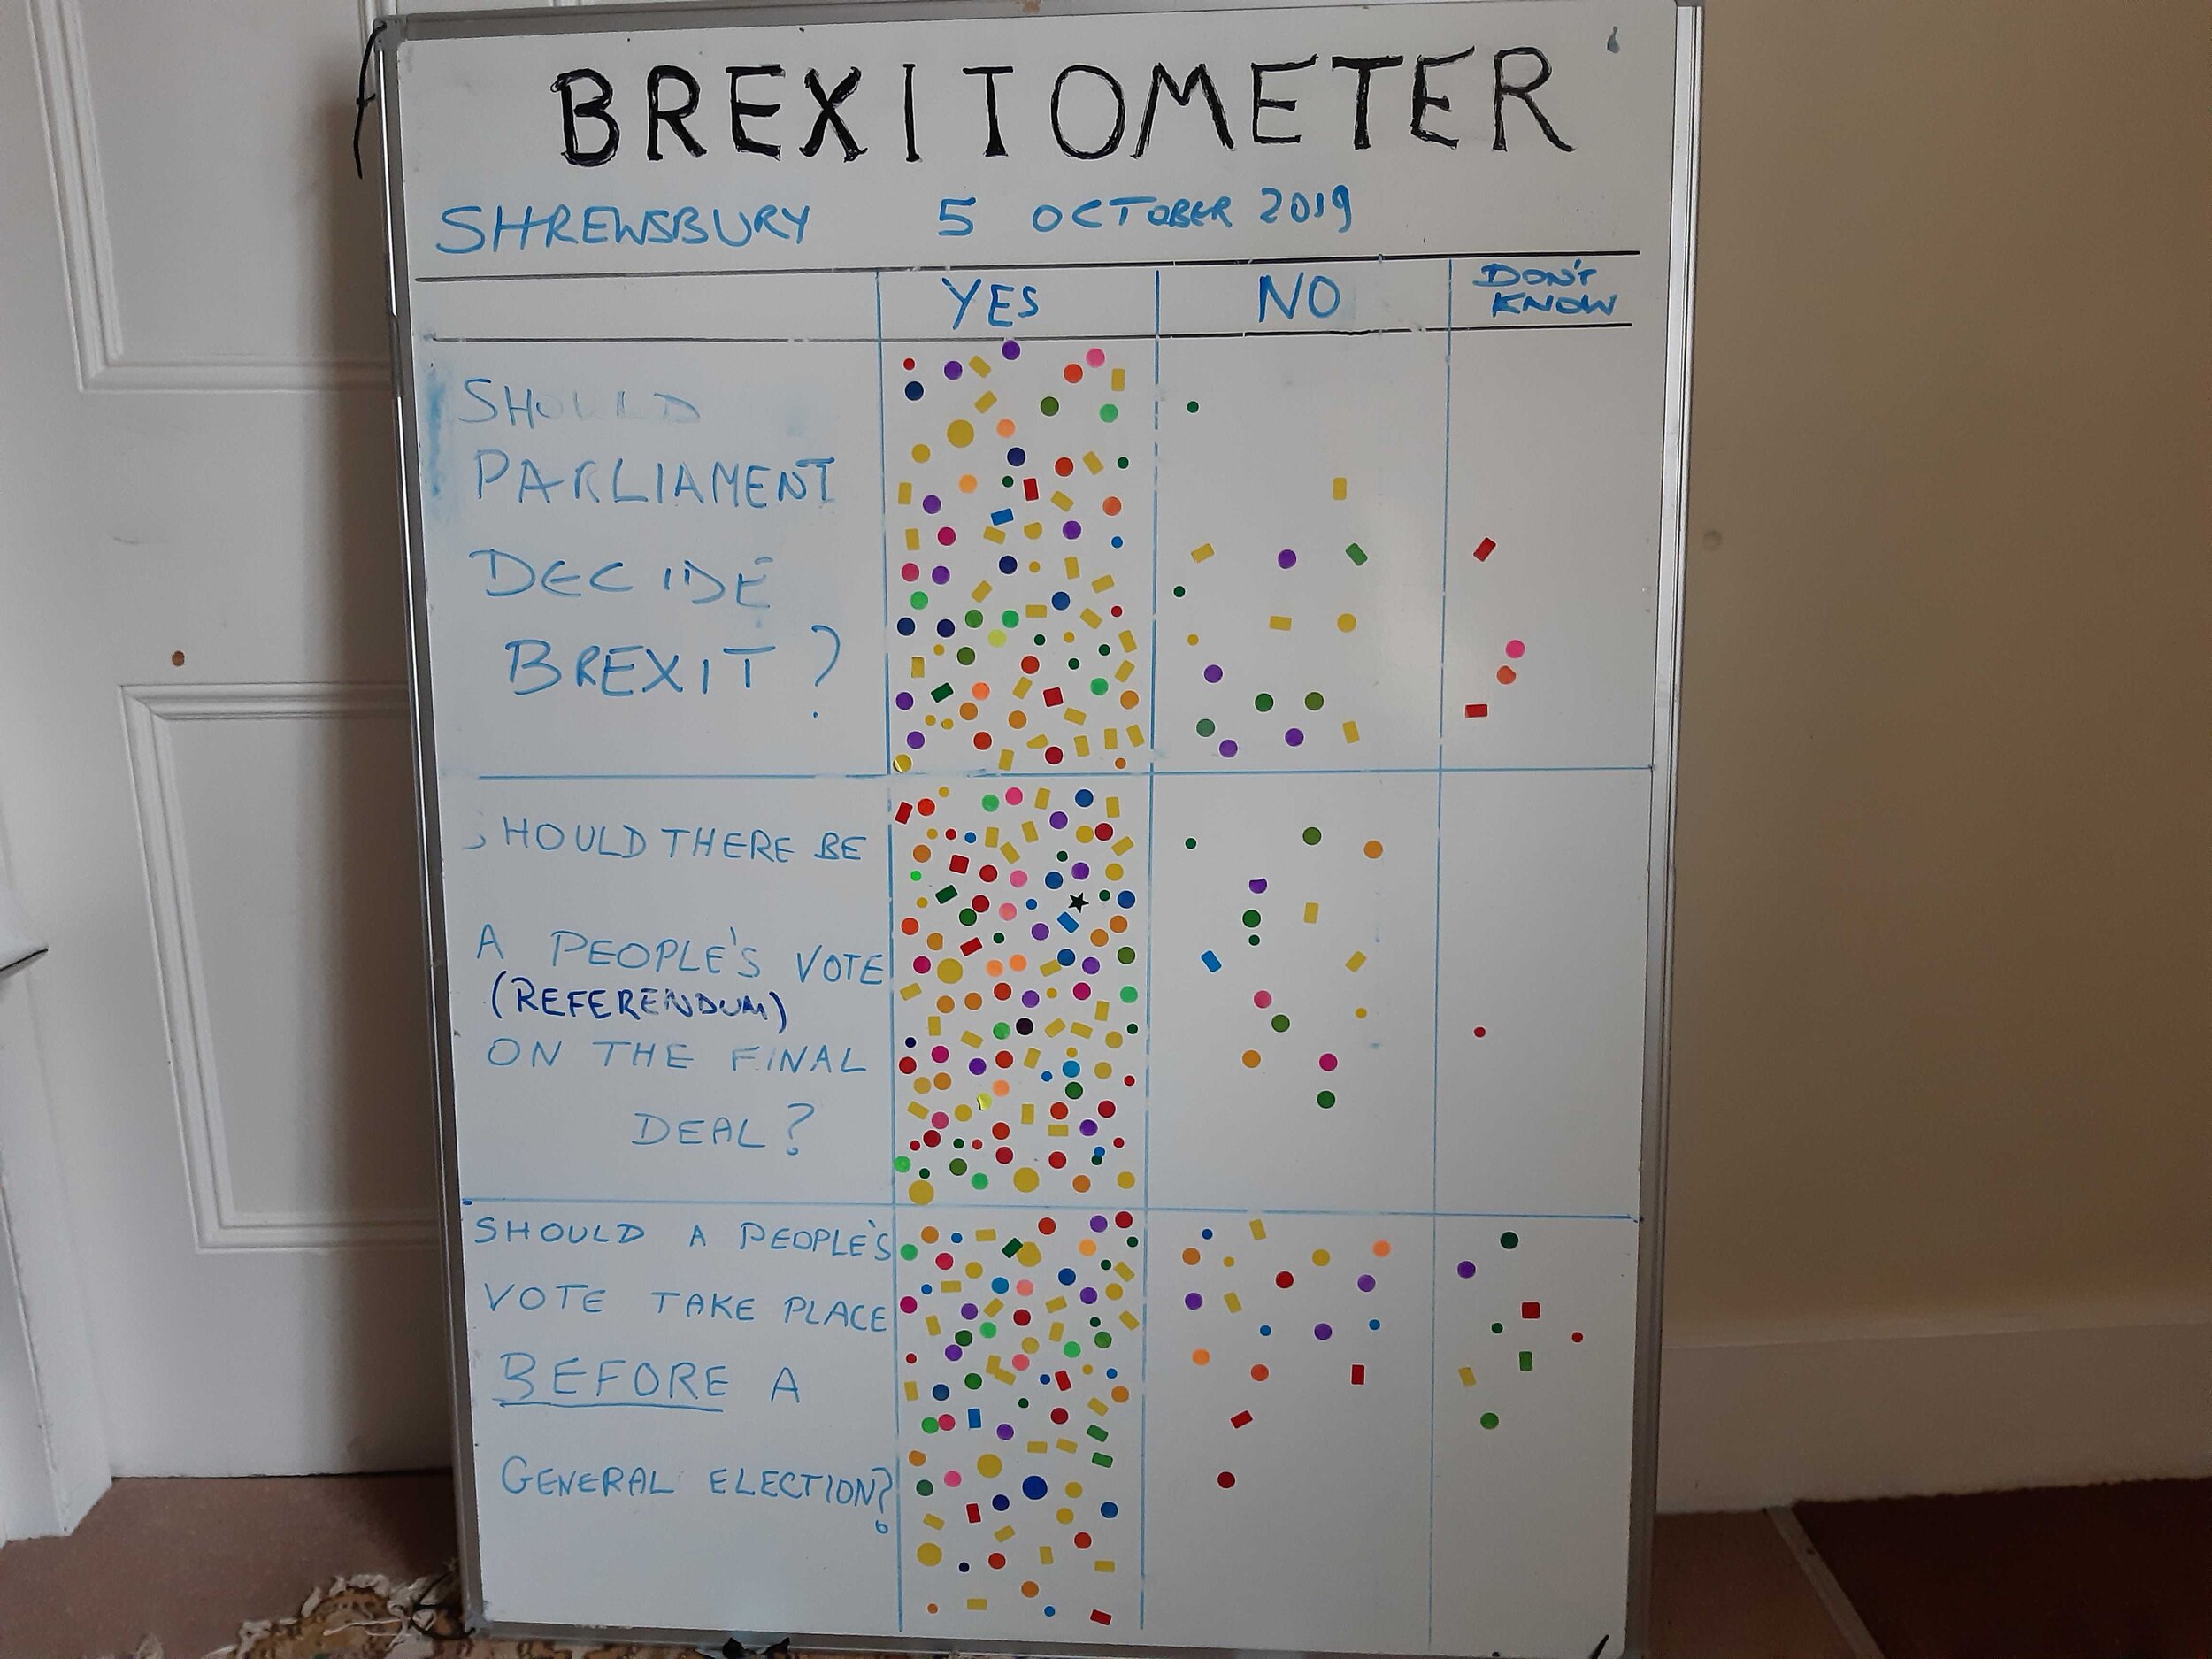 BREXITOMETER
SHREWSBURY 5 OCTOBER 2019
YES NO DON'T KNOW
SHOULD
PARLIAMENT
DECIDE
BREXIT?
SHOULD THERE BE
A PEOPLE'S VOTE
(REFERENDUM)
ON THE FINAL
DEAL?
SHOULD A PEOPLE'S
VOTE TAKE PLACE
BEFORE A
GENERAL ELECTION?